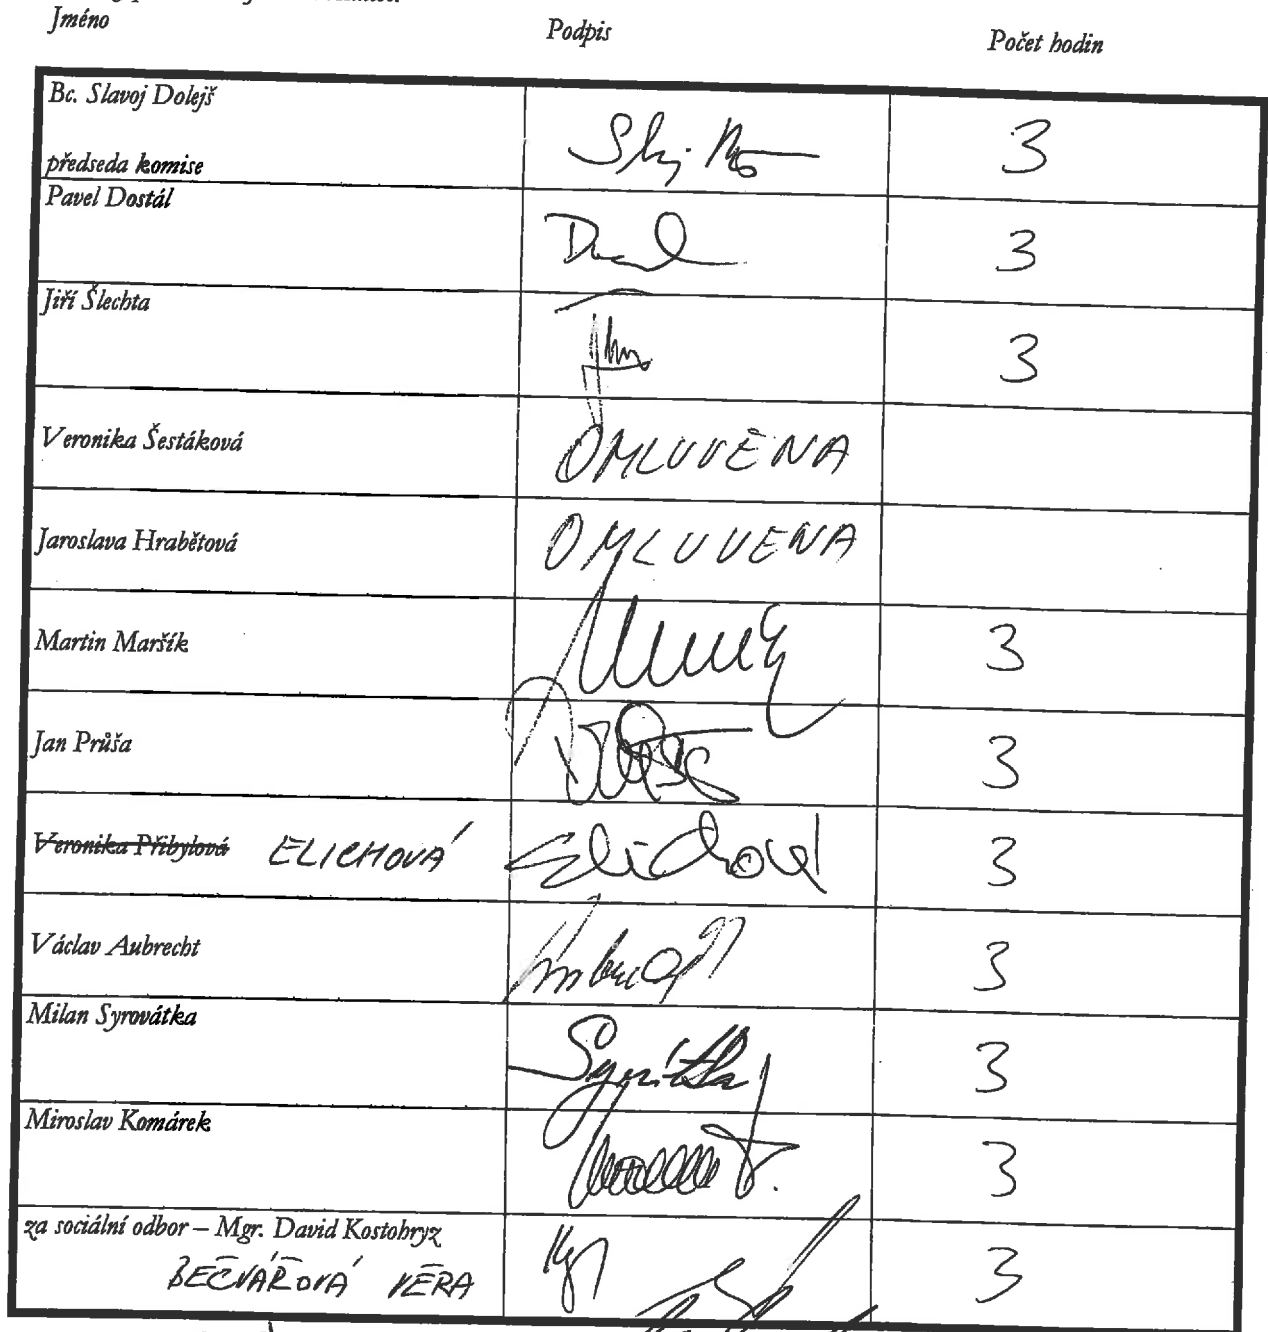 Jméno Podpis Počet hodin
Bc. Slavoj Dolejš
předseda komise 3
Pavel Dostál 3
Jiří Šlechta 3
Veronika Šestáková OMLUVENA
Jaroslava Hrabětová OMLUVENA
Martin Maršík 3
Jan Průša 3
Veronika Přibylová ELICHOVÁ Elichová 3
Václav Aubrecht 3
Milan Syrovátka 3
Miroslav Komárek 3
za sociální odbor – Mgr. David Kostohryz
BEČVÁŘOVÁ VĚRA 3